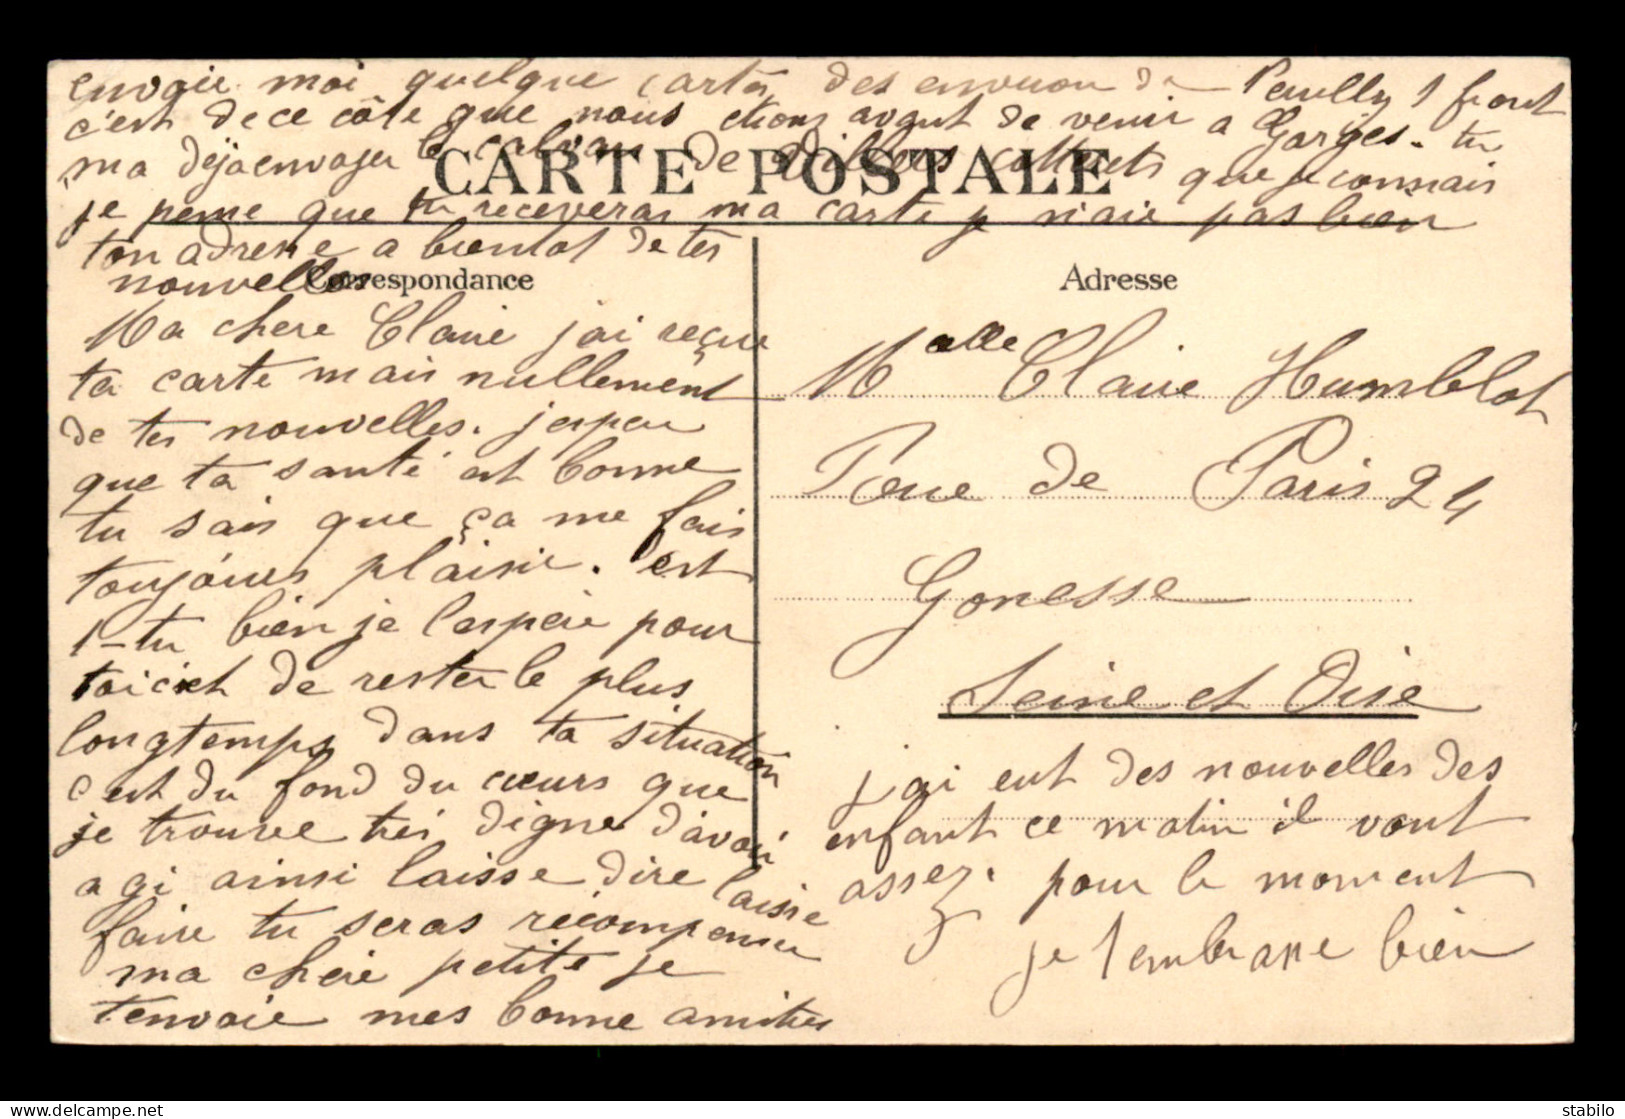 envoie moi quelque carte des environ de Neuilly S front
c'est de ce côte que nous etions avant de venir a Garges. tu
m'a dèja envoyer le calvaire de Villers cotterets que je connais
CARTE POSTALE
je pense que tu receveras ma carte je n'aie pas bien
ton adresse a bientot de tes
nouvelles
Correspondance
Ma chere Claire j'ai reçue
ta carte mais nullement
de tes nouvelles. j'espere
que ta santé est bonne
tu sais que ça me fais
toujours plaisir. est
t-tu bien je l'espère pour
toi c'est de rester le plus
longtemps dans ta situation
c'est du fond du cœurs que
je trouve très digne d'avoir
agi ainsi laisse dire laisse
faire tu seras récompenser
ma chère petite je
t'envoie mes bonne amities
Adresse
Melle Claire Humblot
Rue de Paris 24
Gonesse
Seine et Oise
j'ai eut des nouvelles des
enfant ce matin il vont
assez. pour le moment
je t'embrasse bien
stabilo